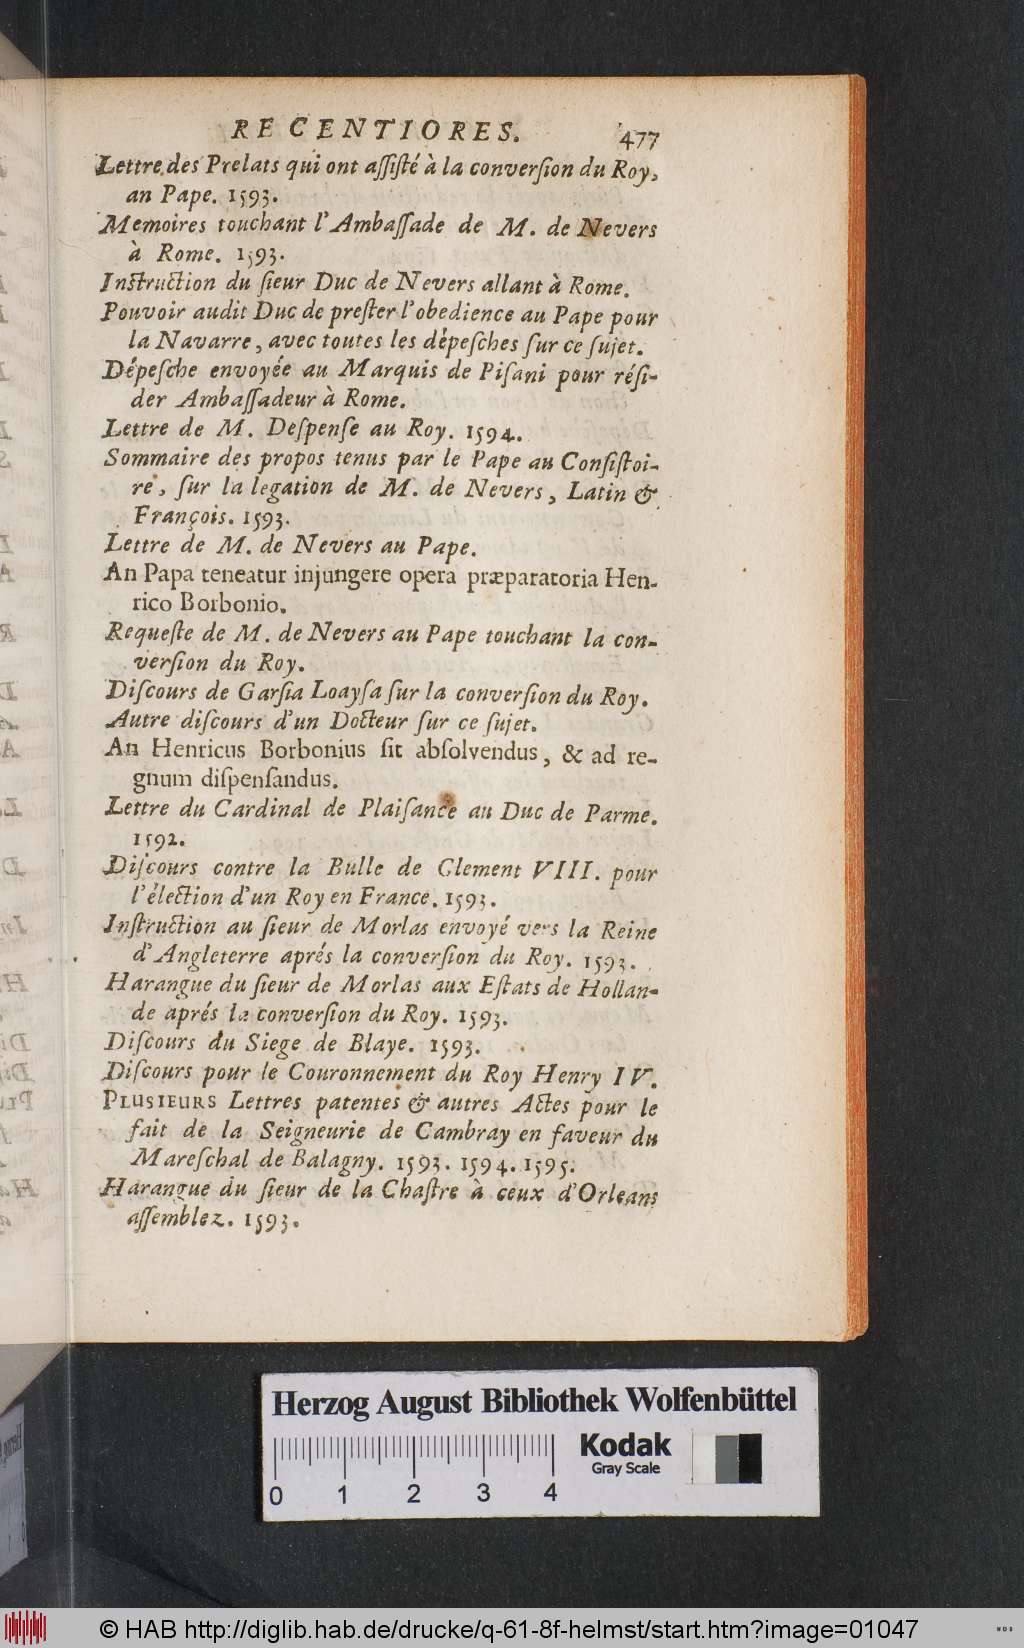 RECENTIORES. 477
Lettre des Prelats qui ont aſſiſté à la converſion du Roy,
an Pape. 1593.
Memoires touchant l'Ambaſſade de M. de Nevers
à Rome. 1593.
Inſtruction du ſieur Duc de Nevers allant à Rome.
Pouvoir audit Duc de preſter l'obedience au Pape pour
la Navarre, avec toutes les dépeſches ſur ce ſujet.
Dépeſche envoyée au Marquis de Piſani pour réſi-
der Ambaſſadeur à Rome.
Lettre de M. Deſpenſe au Roy. 1594.
Sommaire des propos tenus par le Pape au Conſiſtoi-
re, ſur la legation de M. de Nevers, Latin &
François. 1593.
Lettre de M. de Nevers au Pape.
An Papa teneatur injungere opera præparatoria Hen-
rico Borbonio.
Requeſte de M. de Nevers au Pape touchant la con-
verſion du Roy.
Diſcours de Garſia Loayſa ſur la converſion du Roy.
Autre diſcours d'un Docteur ſur ce ſujet.
An Henricus Borbonius ſit abſolvendus, & ad re-
gnum diſpenſandus.
Lettre du Cardinal de Plaiſance au Duc de Parme.
1592.
Diſcours contre la Bulle de Clement VIII. pour
l'élection d'un Roy en France. 1593.
Inſtruction au ſieur de Morlas envoyé vers la Reine
d'Angleterre aprés la converſion du Roy. 1593.
Harangue du ſieur de Morlas aux Eſtats de Hollan-
de aprés la converſion du Roy. 1593.
Diſcours du Siege de Blaye. 1593.
Diſcours pour le Couronnement du Roy Henry IV.
PLUSIEURS Lettres patentes & autres Actes pour le
fait de la Seigneurie de Cambray en faveur du
Mareſchal de Balagny. 1593. 1594. 1595.
Harangue du ſieur de la Chaſtre à ceux d'Orleans
aſſemblez. 1593.
Herzog August Bibliothek Wolfenbüttel
Kodak
Gray Scale
0 1 2 3 4
© HAB http://diglib.hab.de/drucke/q-61-8f-helmst/start.htm?image=01047